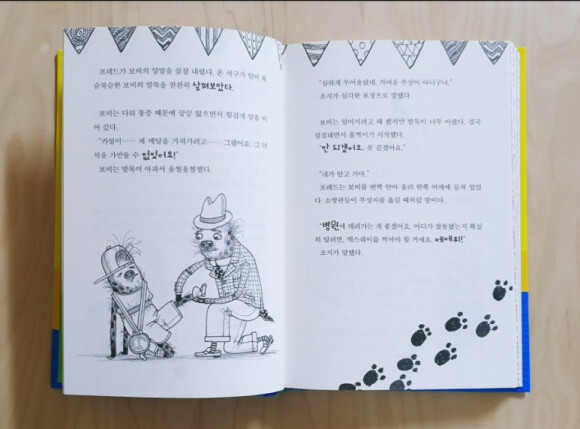 프레드가 보비의 양말을 살살 내렸다. 온 식구가 털이 북
슬북슬한 보비의 발목을 찬찬히 살펴보았다.
보비는 다리 통증 때문에 끙끙 앓으면서 힘겹게 말을 이
어 갔다.
"카일이…… 제 메달을 가져가려고…… 그랬어요. 그 녀
석을 가만둘 수 없었어요!"
보비는 발목이 아파서 울먹울먹했다.
"심하게 부어올랐네. 가벼운 부상이 아니구나."
조지가 심각한 표정으로 말했다.
보비는 일어서려고 해 봤지만 발목이 너무 아팠다. 결국
낑낑대면서 훌쩍이기 시작했다.
"안 되겠어요. 못 걷겠어요."
"내가 안고 가마."
프레드는 보비를 번쩍 안아 올려 한쪽 어깨에 들쳐 업었
다. 소방관들이 부상자를 옮길 때처럼 말이다.
"병원에 데려가는 게 좋겠어요. 어디가 잘못됐는지 확실
히 알려면, 엑스레이를 찍어야 할 거예요.
조지가 말했다.